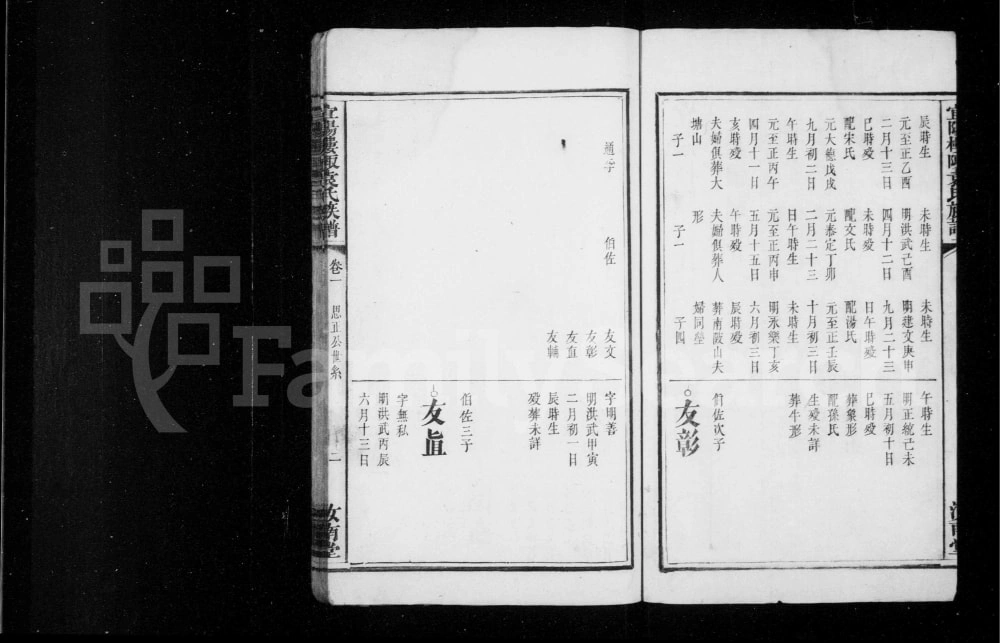 辰時生
元至正乙酉
二月十三日
巳時歿
配宋氏
元大德戊戌
九月初二日
午時生
元至正丙午
四月十一日
亥時歿
夫婦俱葬大
塘山
子一
未時生
明洪武己酉
四月十二日
未時歿
配文氏
元泰定丁卯
二月二十三
日午時生
元至正丙申
五月十五日
午時歿
夫婦俱葬人
形
子一
未時生
明建文庚申
九月二十三
日午時歿
配湯氏
元至正壬辰
十月初三日
未時生
明永樂丁亥
六月初三日
辰時歿
葬南陂山夫
婦同塋
子四
午時生
明正統己未
五月初十日
巳時歿
葬象形
配孫氏
生歿未詳
葬牛形
伯佐次子
友彰
通子
伯佐
友文
友彰
友直
友輔
字明善
明洪武甲寅
二月初一日
辰時生
歿葬未詳
伯佐三子
友直
字無私
明洪武丙辰
六月十三日
袁氏族譜
卷一
思止公世系
二
汝南堂
FamilySearch